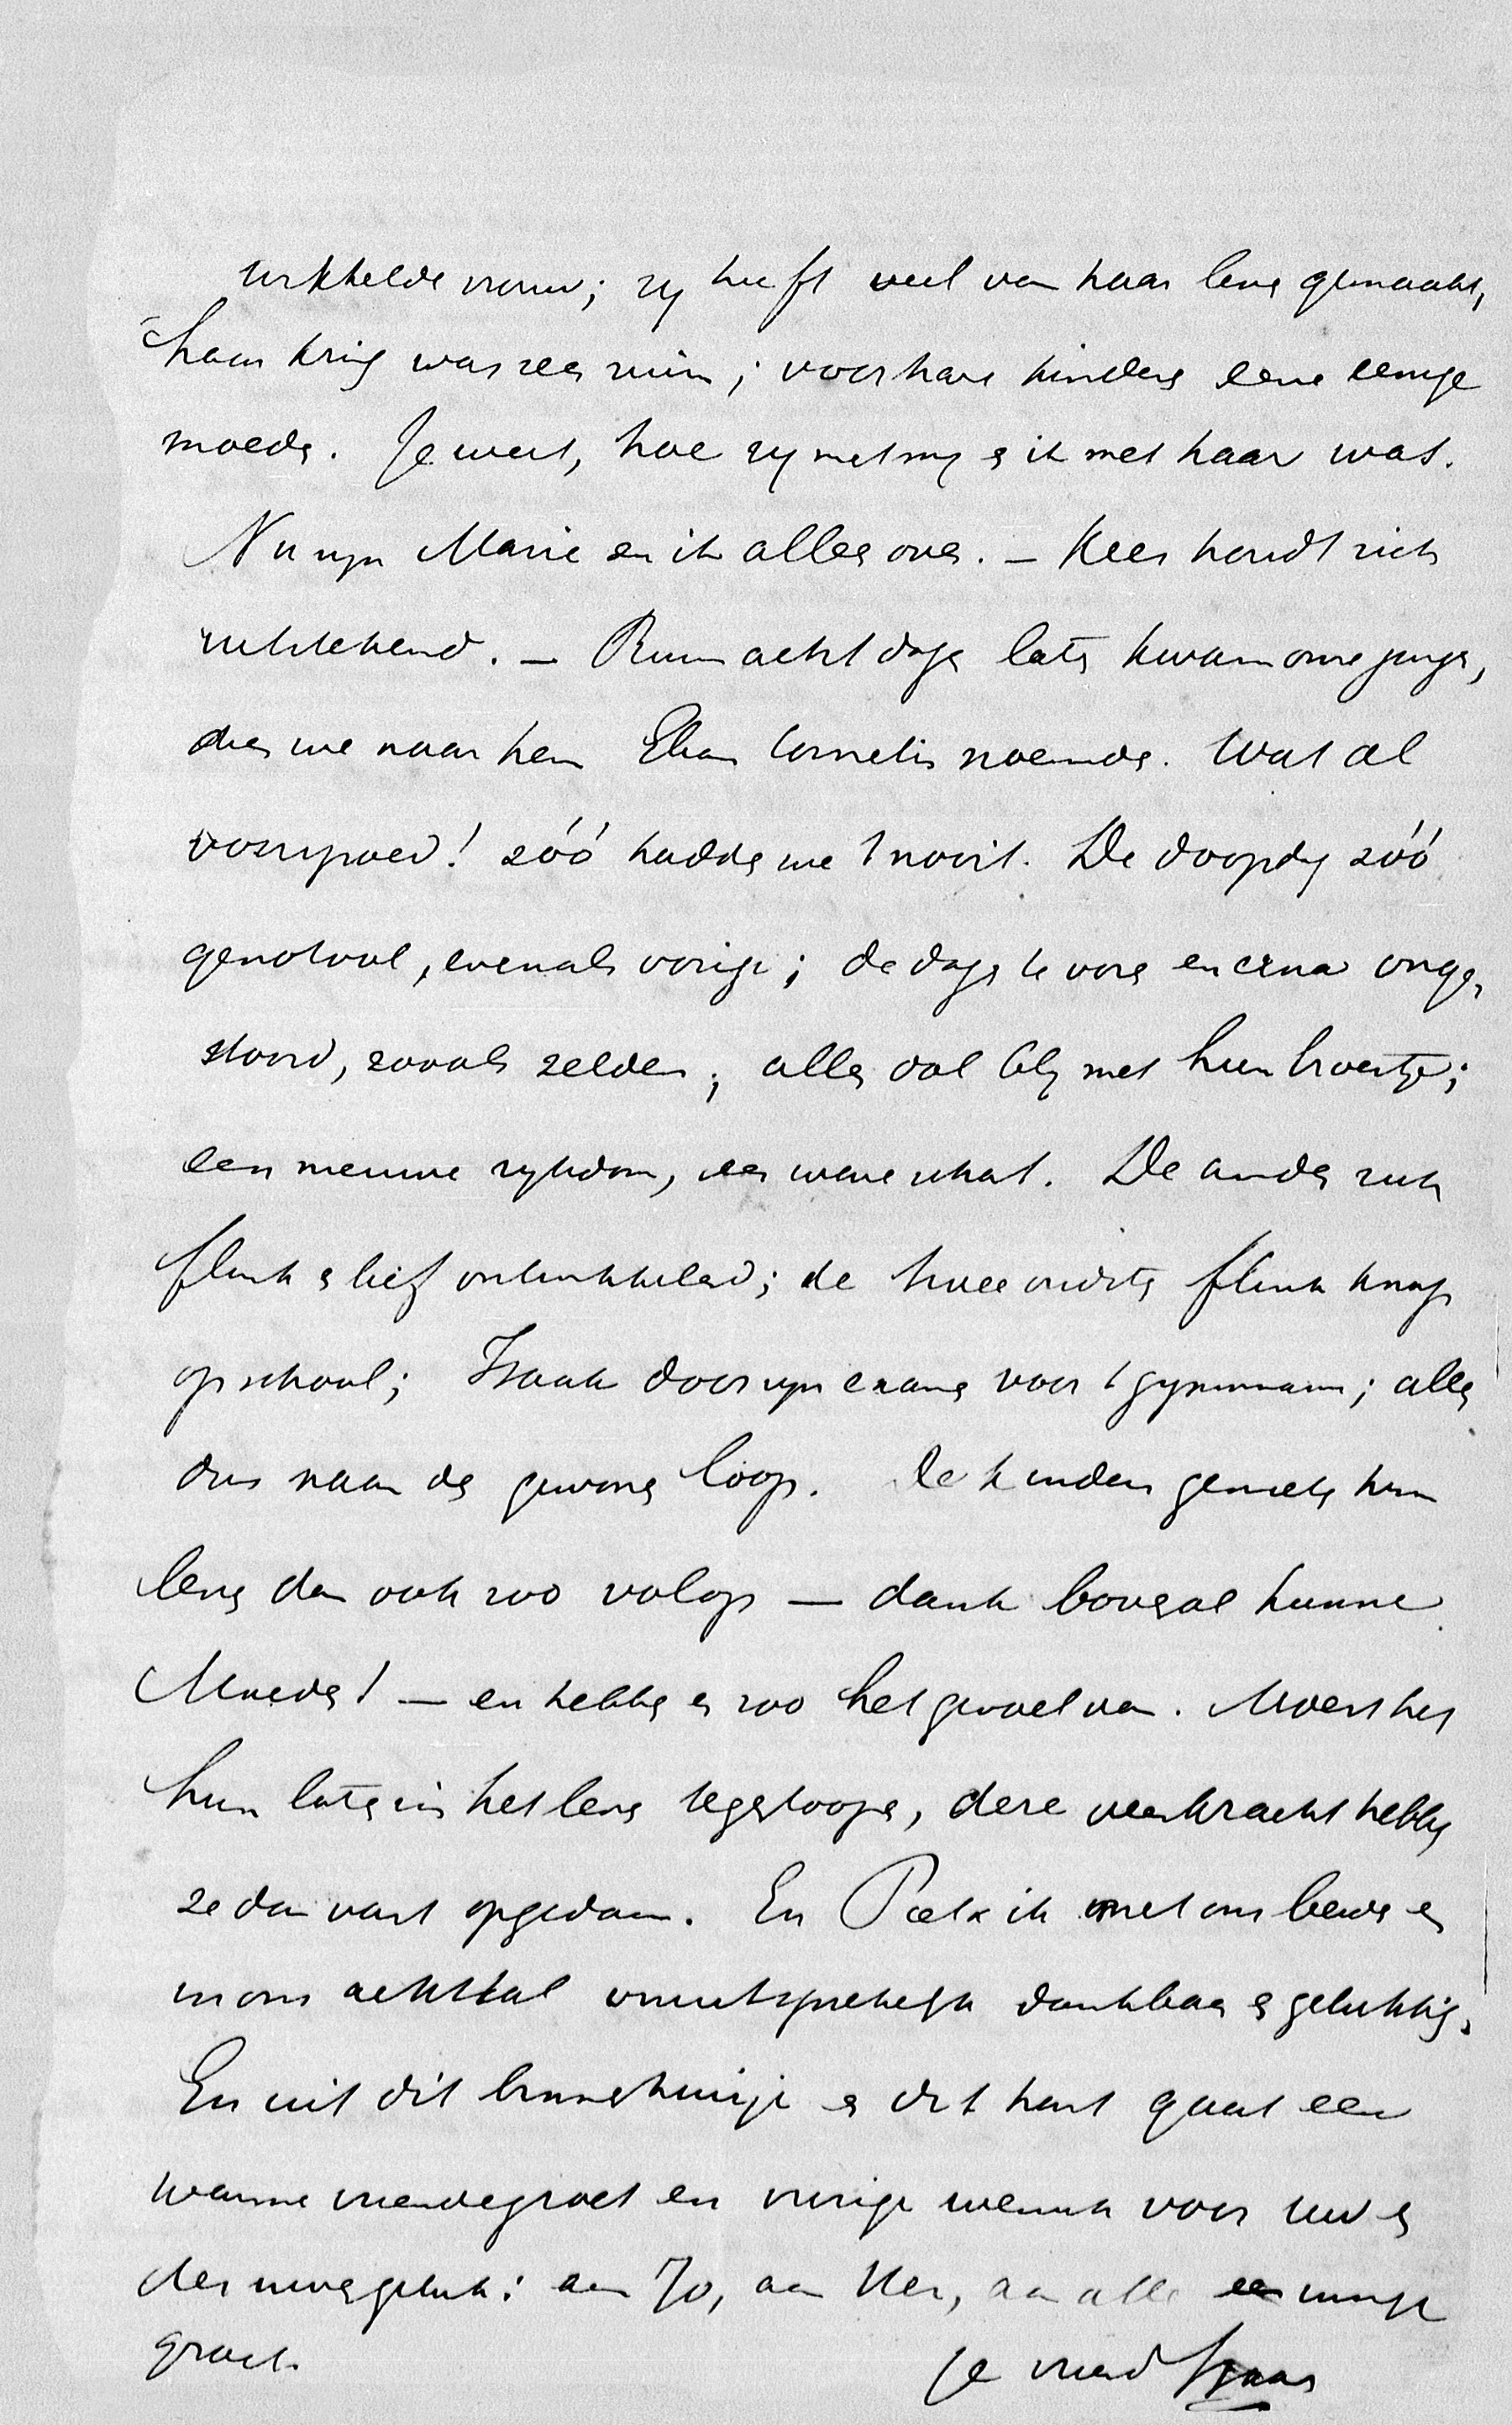 wikkelde vrouw; zij heeft veel van haar leven gemaakt,
haar kring was zeer ruim; voor hare kinders eene eenige
moeder. Je weet, hoe zij met mij en ik met haar was.
Nu zijn Marie en ik alleen over. — Kees houdt zich
uitstekend. — Ruim acht dagen later kwam onze jongen,
dien we naar hem Elias Cornelis noemden. Wat al
voorspoed! zóó hadden we 't nooit. De doopdag zóó
genotvol, evenals vorige; de dagen te voren en erna onge-
stoord, zooals zelden; allen dol blij met hun broertje;
een nieuwe rijkdom, een ware schat. De andere zich
flink en lief ontwikkelend; de twee oudsten flink knap
op school; Izaak door zijn examen voor 't gymnasium; alles
dus naar de gewone loop. De kinderen genieten hun
leven dan ook zoo volop — dank bovenal hunne
Moeder! — en hebben er zoo het gevoel van. Moest het
hun later in het leven tegenloopen, deze veerkracht hebben
ze dan vast opgedaan. En Poel en ik met ons beide en
in ons achttal onuitsprekelijk dankbaar en gelukkig.
En uit dit binnenhuisje en dit hart gaat een
warme vriendengroet en vurige wensch voor uw en
der uwen geluk: aan Jo, aan Her, aan alle een innige
groet.
je vriend Izaak